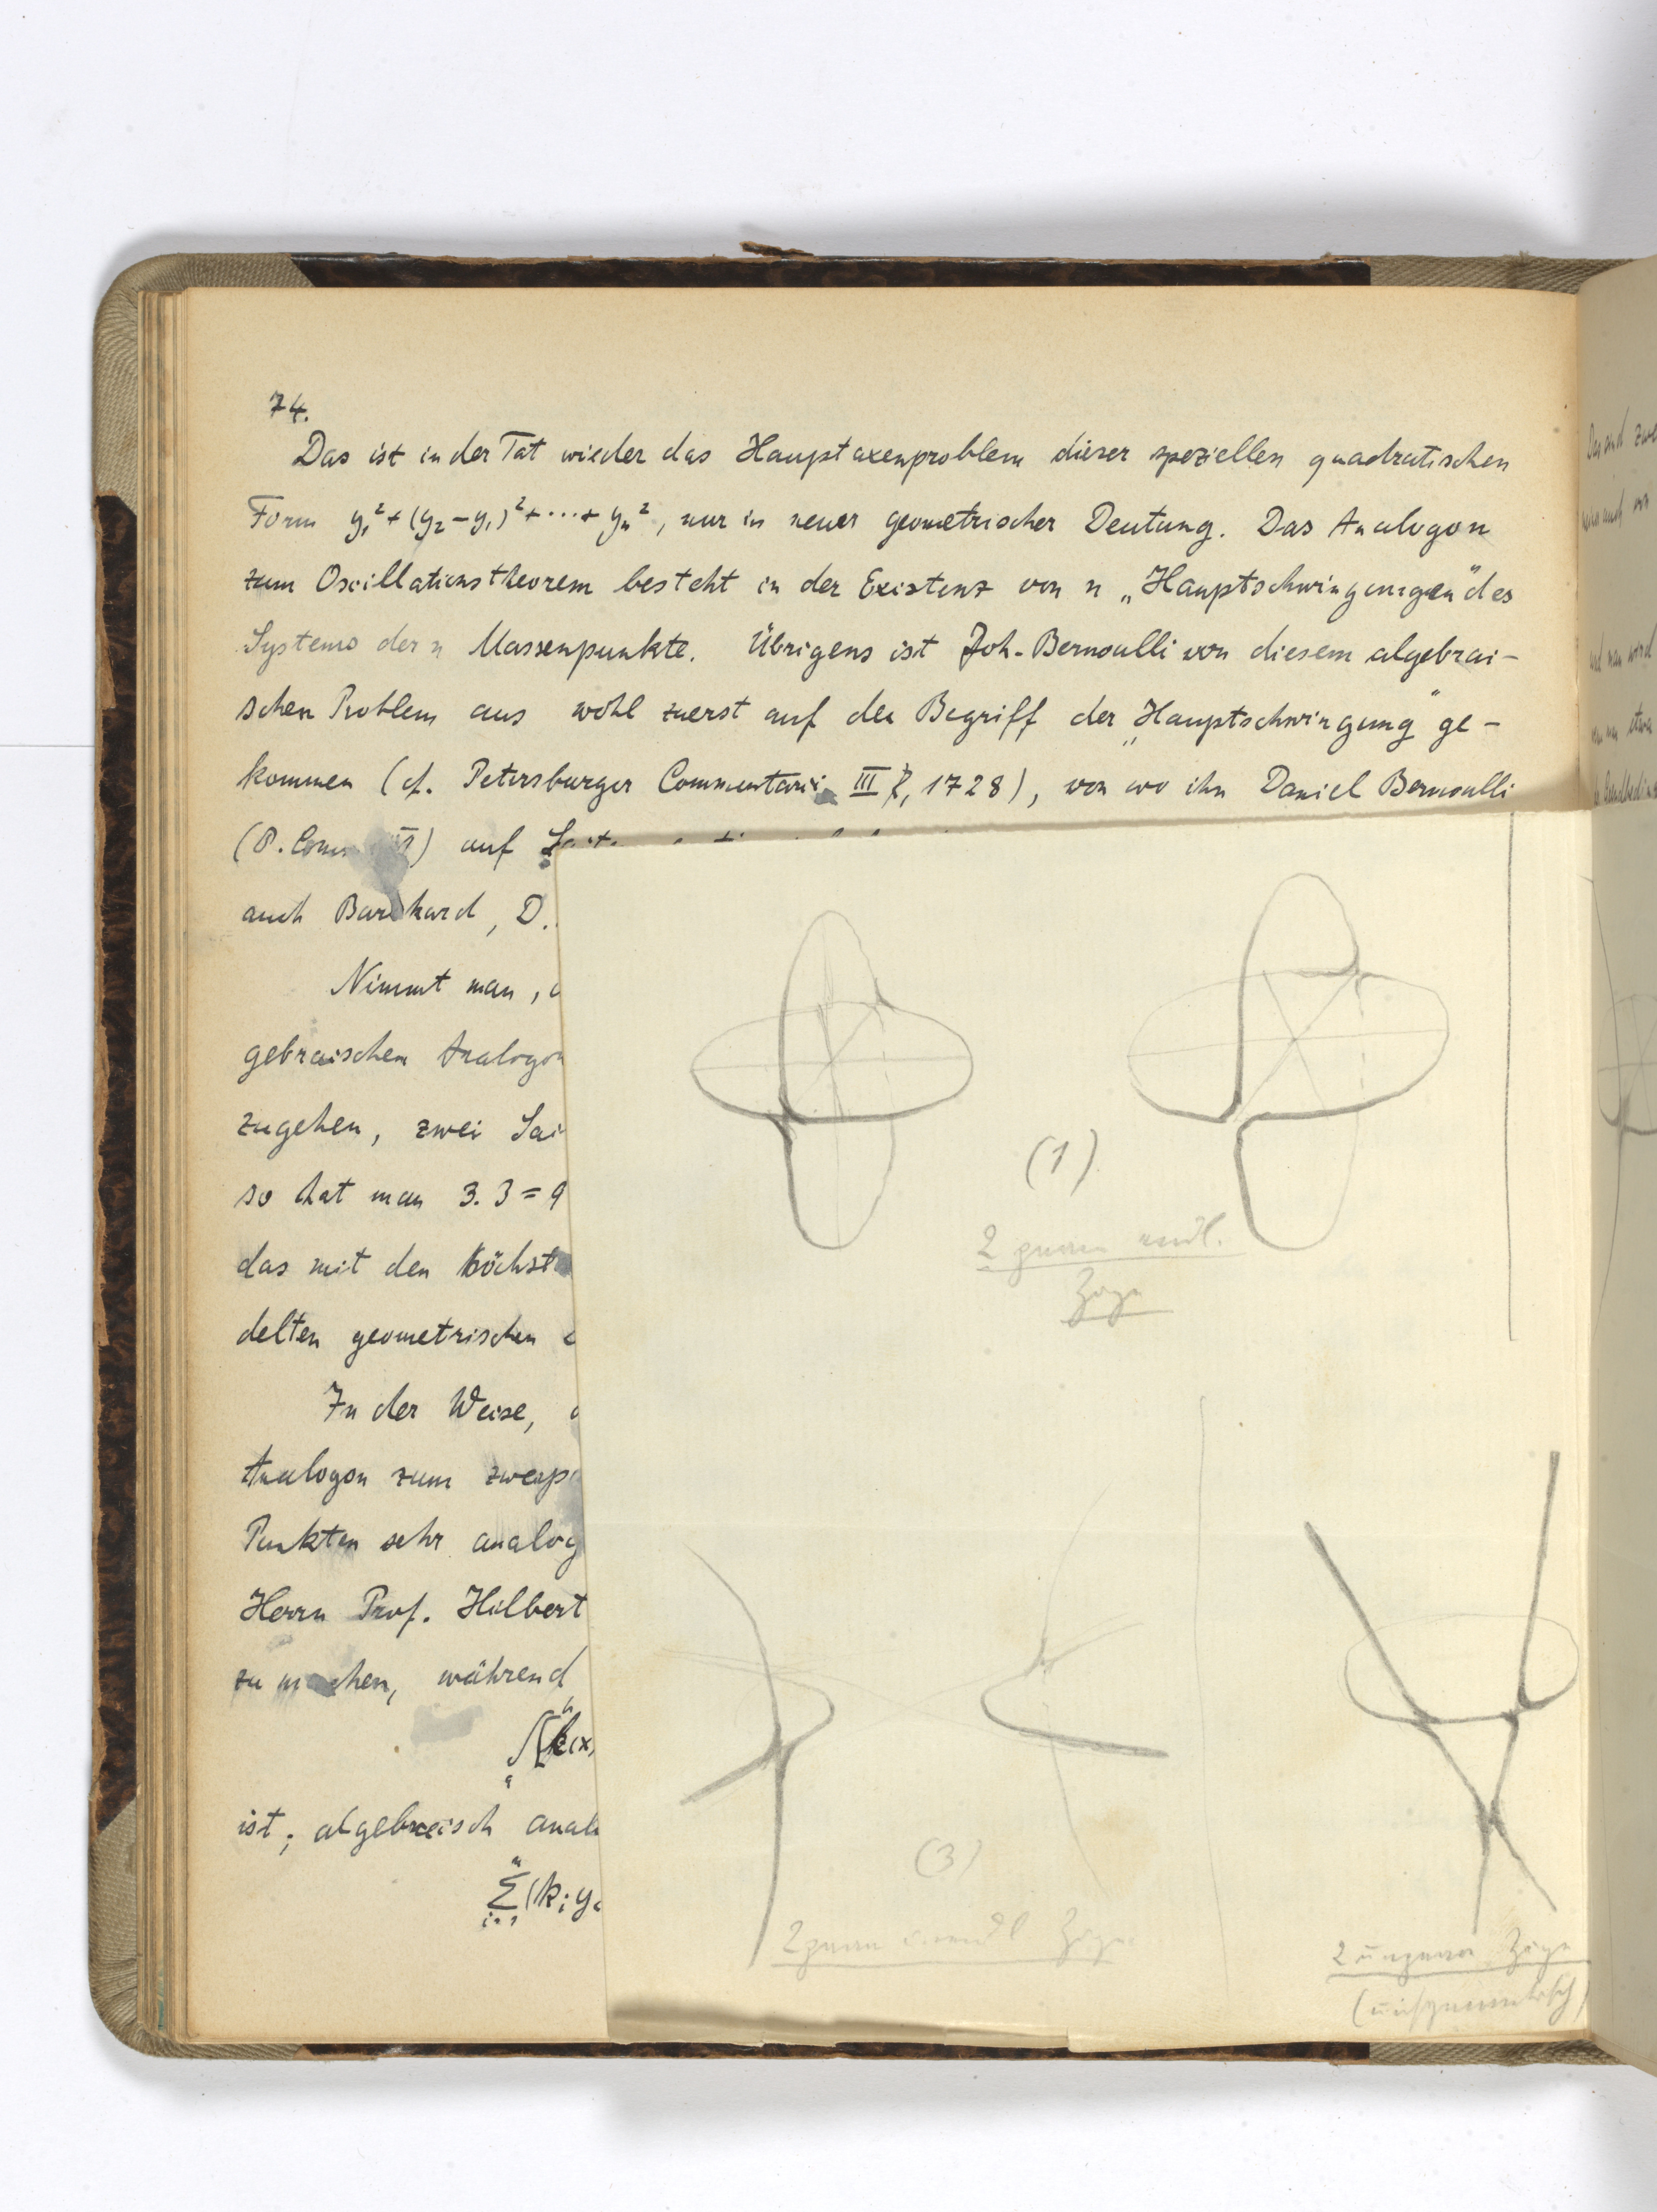 74.
Das ist in der Tat wieder das Hauptaxenproblem dieser speziellen quadratischen
Form y₁² + (y₂ – y₁)² + ··· + yₙ², nur in neuer geometrischer Deutung. Das Analogon
zum Oscillationstheorem besteht in der Existenz von n „Hauptschwingungen" des
Systems der n Massenpunkte. Übrigens ist Joh. Bernoulli von diesem algebrai-
schen Problem aus wohl zuerst auf den Begriff der „Hauptschwingung" ge-
kommen (cf. Petersburger Commentarii III, 1728), von wo ihn Daniel Bernoulli
(P. Comm. ) auf
auch Burkhard, D.
Nimmt man,
gebraischen Analogon
zugehen, zwei Sai
so hat man 3.3 = 9
das mit den höchst
delten geometrischen
In der Weise,
Analogon zum zweip
Punkten sehr analog
Herrn Prof. Hilbert
zu machen, während
∫[k(x)
ist; algebraisch anal
Σ(kᵢ yᵢ
(1)
2
Züge
(3)
2 Züge
2 Züge
(unsymmetrisch)